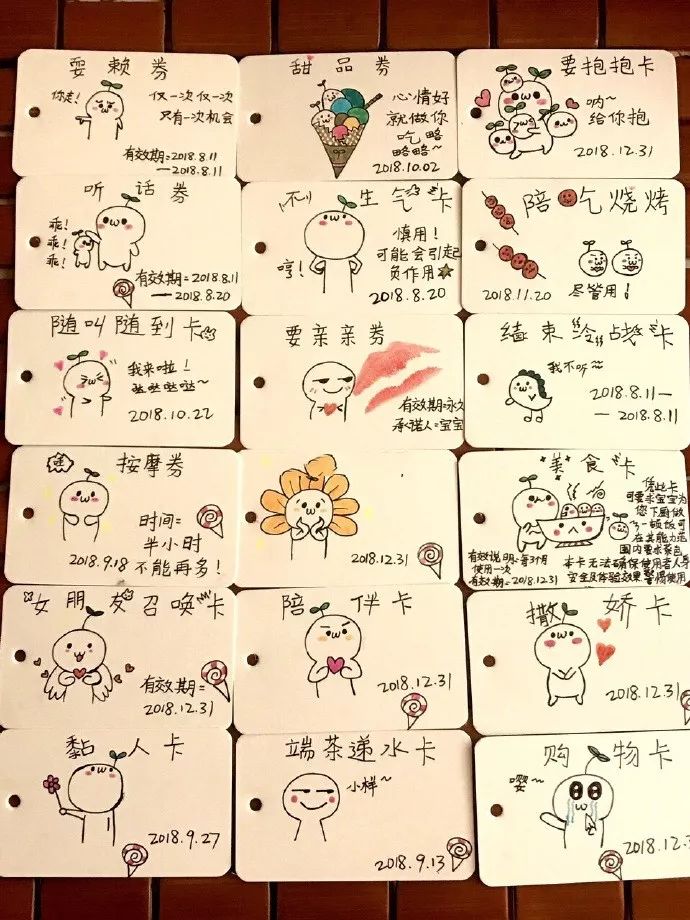 耍赖券
你走!
仅一次仅一次
只有一次机会
有效期=2018.8.11
—2018.8.11
甜品券
心情好
就做你
吃略
略略~
2018.10.02
要抱抱卡
呐~
给你抱
2018.12.31
听话券
乖!
乖!
乖!
有效期=2018.8.11
—2018.8.20
不生气卡
哼!
慎用!
可能会引起
负作用
2018.8.20
陪吃烧烤
2018.11.20
尽管用!
随叫随到卡
我来啦!
哒哒哒哒~
2018.10.22
要亲亲券
有效期=永久
承诺人=宝宝
结束冷战卡
我不听~
2018.8.11—
—2018.8.11
按摩券
时间=
半小时
不能再多!
2018.9.18
2018.12.31
美食卡
凭此卡
可要求宝宝为
您下厨做
一顿饭可
在其能力范
围内要求菜色
有效说明=每3个月
使用一次
有效期=2018.12.31
本卡无法确保使用者人身
安全及体验效果 警惕使用
女朋友召唤卡
有效期=
2018.12.31
陪伴卡
2018.12.31
撒娇卡
2018.12.31
黏人卡
2018.9.27
端茶递水卡
小样~
2018.9.13
购物卡
嘤~
2018.12.3